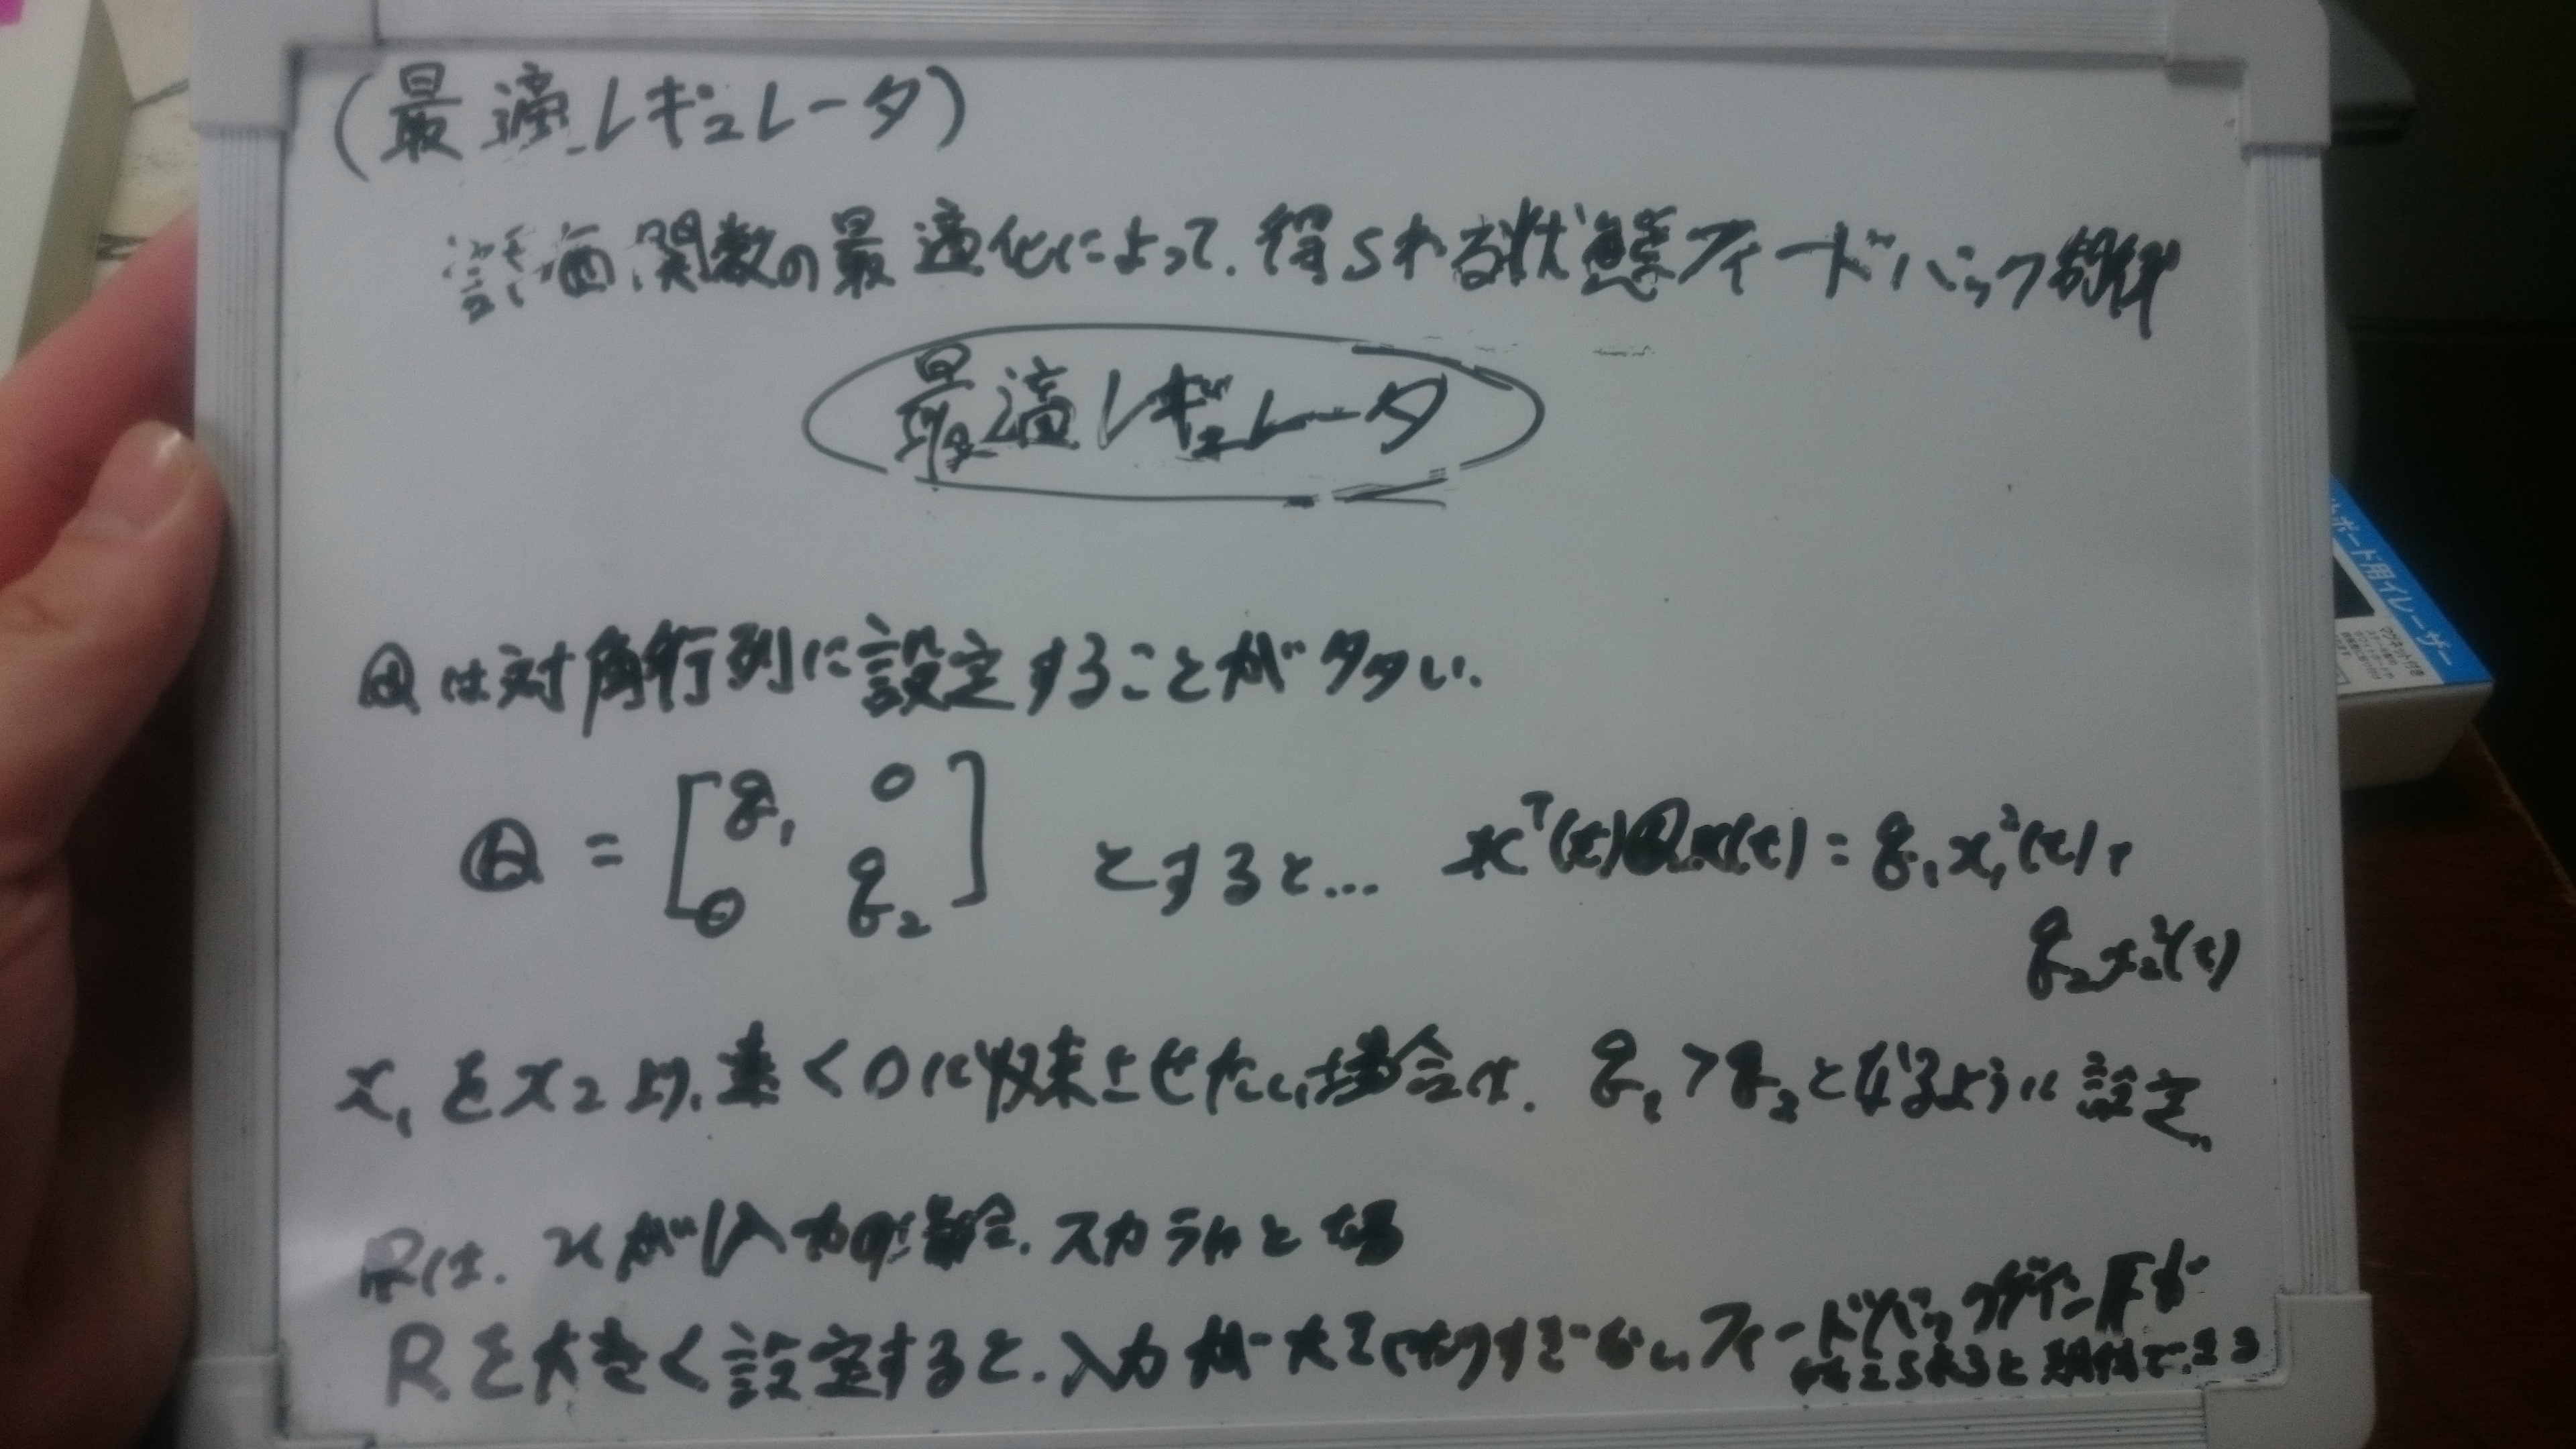 (最適レギュレータ)
評価関数の最適化によって.得られる状態フィードバック制御
最適レギュレータ
Qは対角行列に設定することが多い.
Q = [q₁ 0
0 q₂] とすると... xᵀ(t)Qx(t) = q₁x₁²(t)+
q₂x₂²(t)
x₁をx₂より,速く0に収束させたい場合は. q₁>q₂となるように設定
Rは. が1入力の場合.スカラーとなる
Rを大きく設定すると.入力が大きくなりすぎない フィードバックゲインFが
得られると期待できる
ボード用イレーザー